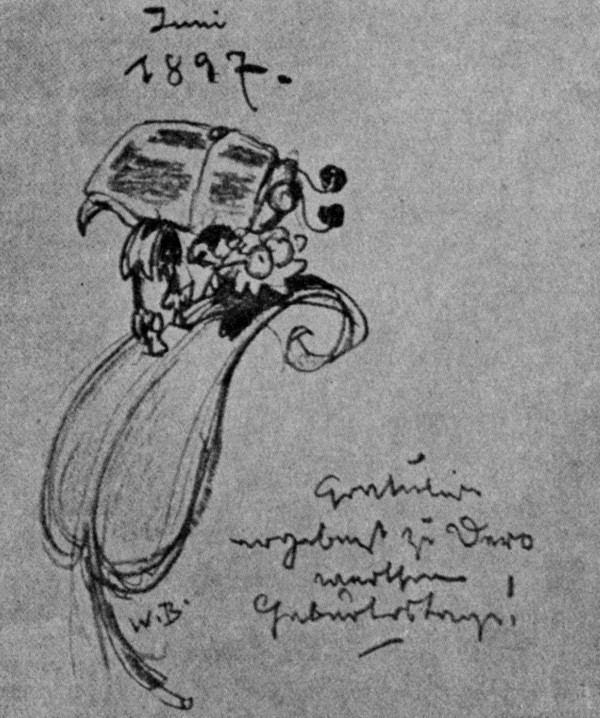 Juni
1897.
Gratulire
ergebenst zu Dero
werthem
Geburtstage!
W.B.